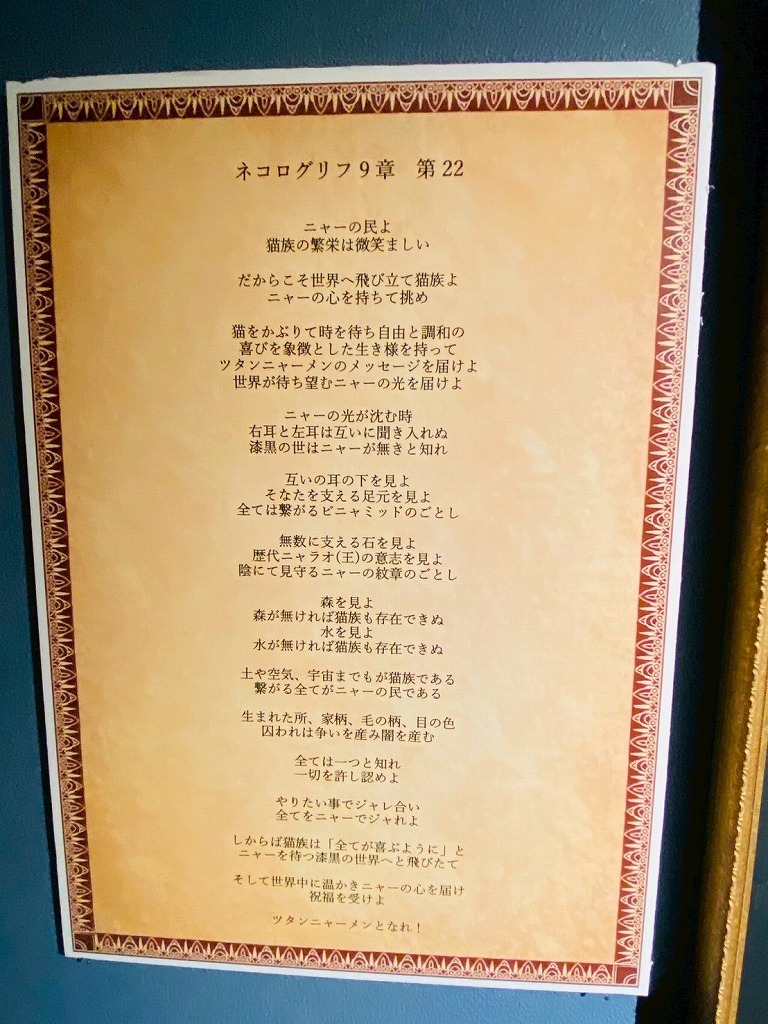 ネコログリフ9章　第22
ニャーの民よ
猫族の繁栄は微笑ましい
だからこそ世界へ飛び立て猫族よ
ニャーの心を持ちて挑め
猫をかぶりて時を待ち自由と調和の
喜びを象徴とした生き様を持って
ツタンニャーメンのメッセージを届けよ
世界が待ち望むニャーの光を届けよ
ニャーの光が沈む時
右耳と左耳は互いに聞き入れぬ
漆黒の世はニャーが無きと知れ
互いの耳の下を見よ
そなたを支える足元を見よ
全ては繋がるピニャミッドのごとし
無数に支える石を見よ
歴代ニャラオ(王)の意志を見よ
陰にて見守るニャーの紋章のごとし
森を見よ
森が無ければ猫族も存在できぬ
水を見よ
水が無ければ猫族も存在できぬ
土や空気、宇宙までもが猫族である
繋がる全てがニャーの民である
生まれた所、家柄、毛の柄、目の色
囚われは争いを産み闇を産む
全ては一つと知れ
一切を許し認めよ
やりたい事でジャレ合い
全てをニャーでジャれよ
しからば猫族は「全てが喜ぶように」と
ニャーを待つ漆黒の世界へと飛びたて
そして世界中に温かきニャーの心を届け
祝福を受けよ
ツタンニャーメンとなれ！